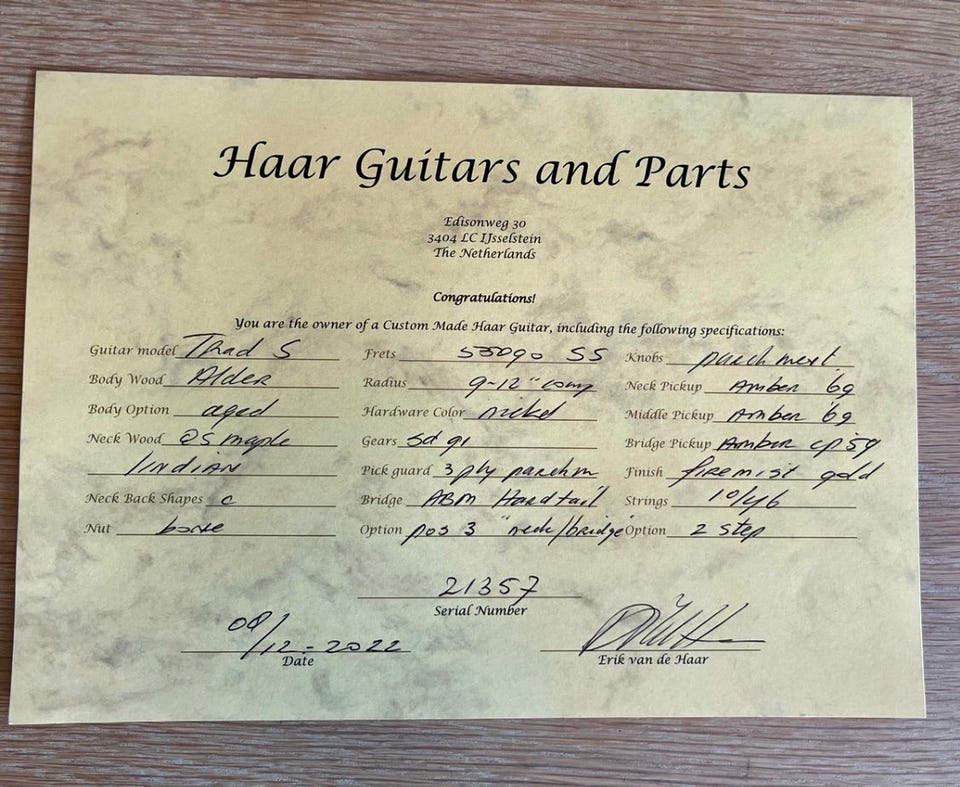 Haar Guitars and Parts
Edisonweg 30
3404 LC IJsselstein
The Netherlands
Congratulations!
You are the owner of a Custom Made Haar Guitar, including the following specifications:
Guitar model Trad S
Body Wood Alder
Body Option aged
Neck Wood QS maple
Indian
Neck Back Shapes C
Nut bone
Frets 55090 SS
Radius 9-12" comp
Hardware Color nickel
Gears Sd 91
Pick guard 3 ply parchm
Bridge ABM Hardtail
Option pos 3 "neck/bridge"
Knobs parchment
Neck Pickup Amber '69
Middle Pickup Amber '69
Bridge Pickup Amber cp 59
Finish firemist gold
Strings 10/46
Option 2 step
21357
Serial Number
08/12-2022
Date
Erik van de Haar